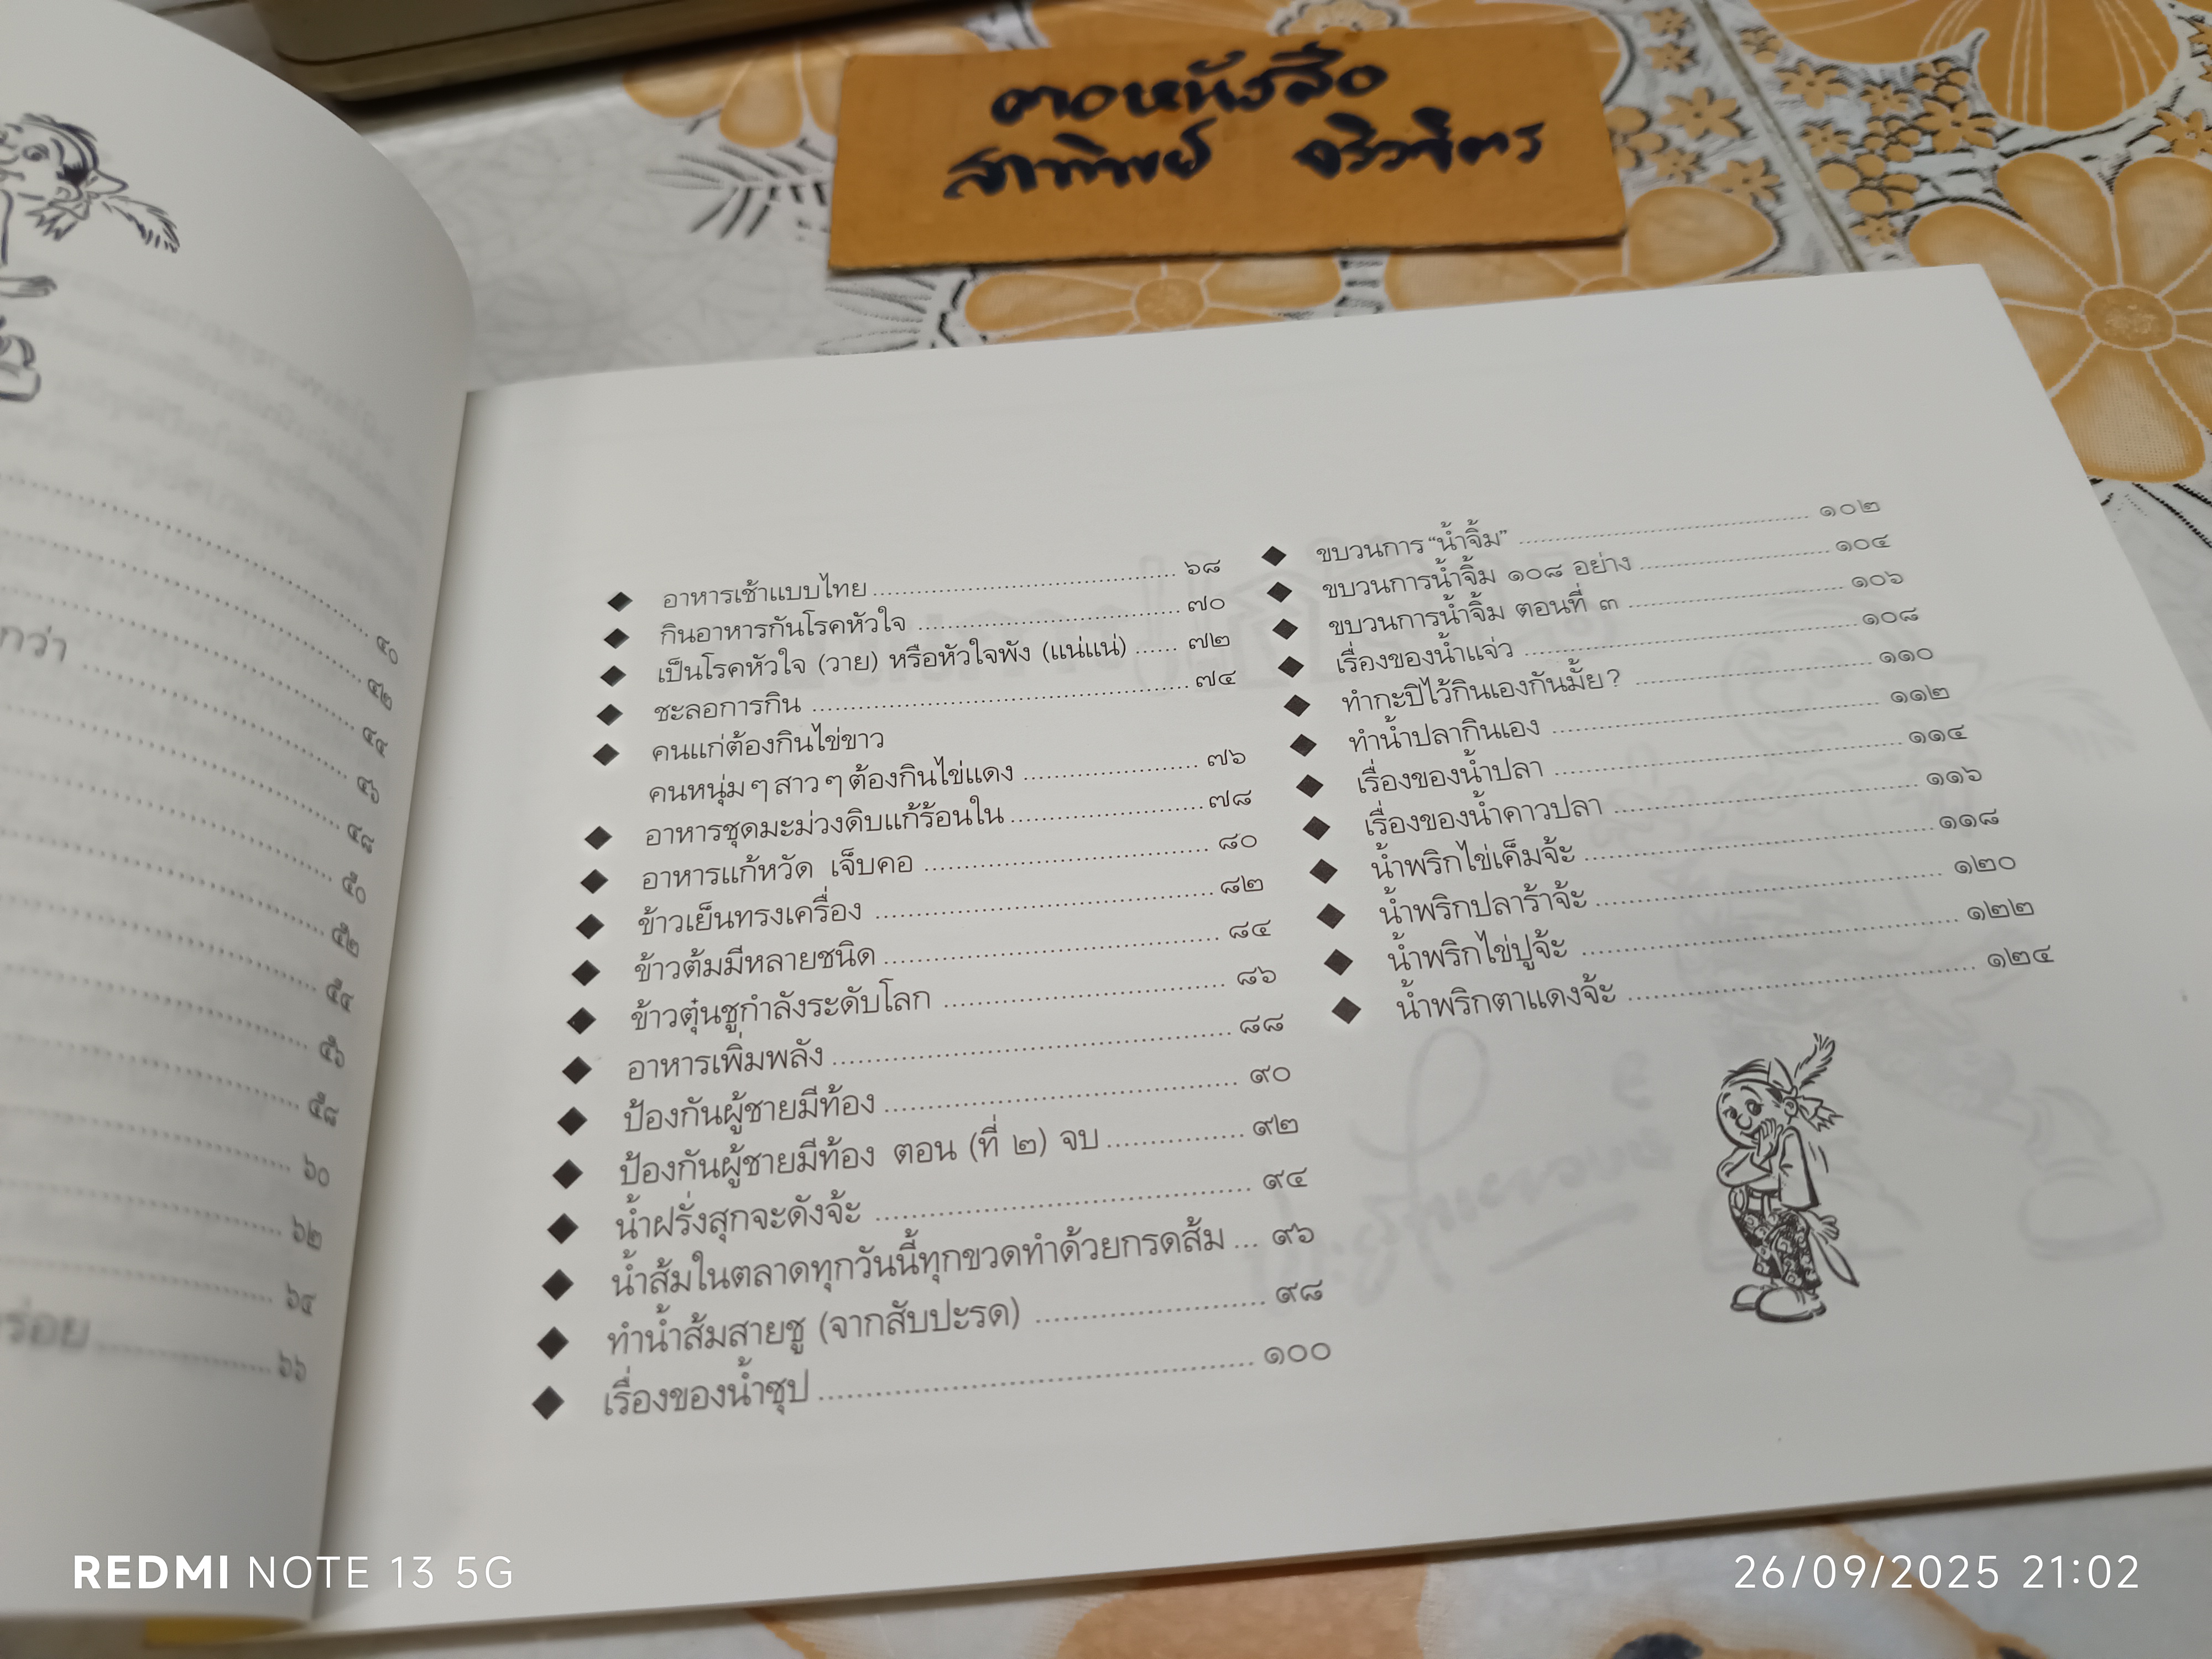 สาทิพย์
กว่า
๔๐
๔๒
๔๔
๔๖
๔๘
๕๐
๕๒
๕๔
๕๖
๕๘
๖๐
๖๒
๖๔
ร่อย ๖๖
◆ อาหารเช้าแบบไทย ๖๘
◆ กินอาหารกันโรคหัวใจ ๗๐
◆ เป็นโรคหัวใจ (วาย) หรือหัวใจพัง (แน่แน่) ๗๒
◆ ชะลอการกิน ๗๔
◆ คนแก่ต้องกินไข่ขาว
คนหนุ่ม ๆ สาว ๆ ต้องกินไข่แดง ๗๖
◆ อาหารชุดมะม่วงดิบแก้ร้อนใน ๗๘
◆ อาหารแก้หวัด เจ็บคอ ๘๐
◆ ข้าวเย็นทรงเครื่อง ๘๒
◆ ข้าวต้มมีหลายชนิด ๘๔
◆ ข้าวตุ๋นชูกำลังระดับโลก ๘๖
◆ อาหารเพิ่มพลัง ๘๘
◆ ป้องกันผู้ชายมีท้อง ๙๐
◆ ป้องกันผู้ชายมีท้อง ตอน (ที่ ๒) จบ ๙๒
◆ น้ำฝรั่งสุกจะดังจ้ะ ๙๔
◆ น้ำส้มในตลาดทุกวันนี้ทุกขวดทำด้วยกรดส้ม ๙๖
◆ ทำน้ำส้มสายชู (จากสับปะรด) ๙๘
◆ เรื่องของน้ำซุป ๑๐๐
◆ ขบวนการ “น้ำจิ้ม” ๑๐๒
◆ ขบวนการน้ำจิ้ม ๑๐๘ อย่าง ๑๐๔
◆ ขบวนการน้ำจิ้ม ตอนที่ ๓ ๑๐๖
◆ เรื่องของน้ำแจ่ว ๑๐๘
◆ ทำกะปิไว้กินเองกันมั้ย? ๑๑๐
◆ ทำน้ำปลากินเอง ๑๑๒
◆ เรื่องของน้ำปลา ๑๑๔
◆ เรื่องของน้ำคาวปลา ๑๑๖
◆ น้ำพริกไข่เค็มจ้ะ ๑๑๘
◆ น้ำพริกปลาร้าจ้ะ ๑๒๐
◆ น้ำพริกไข่ปูจ้ะ ๑๒๒
◆ น้ำพริกตาแดงจ้ะ ๑๒๔
REDMI NOTE 13 5G
26/09/2025 21:02